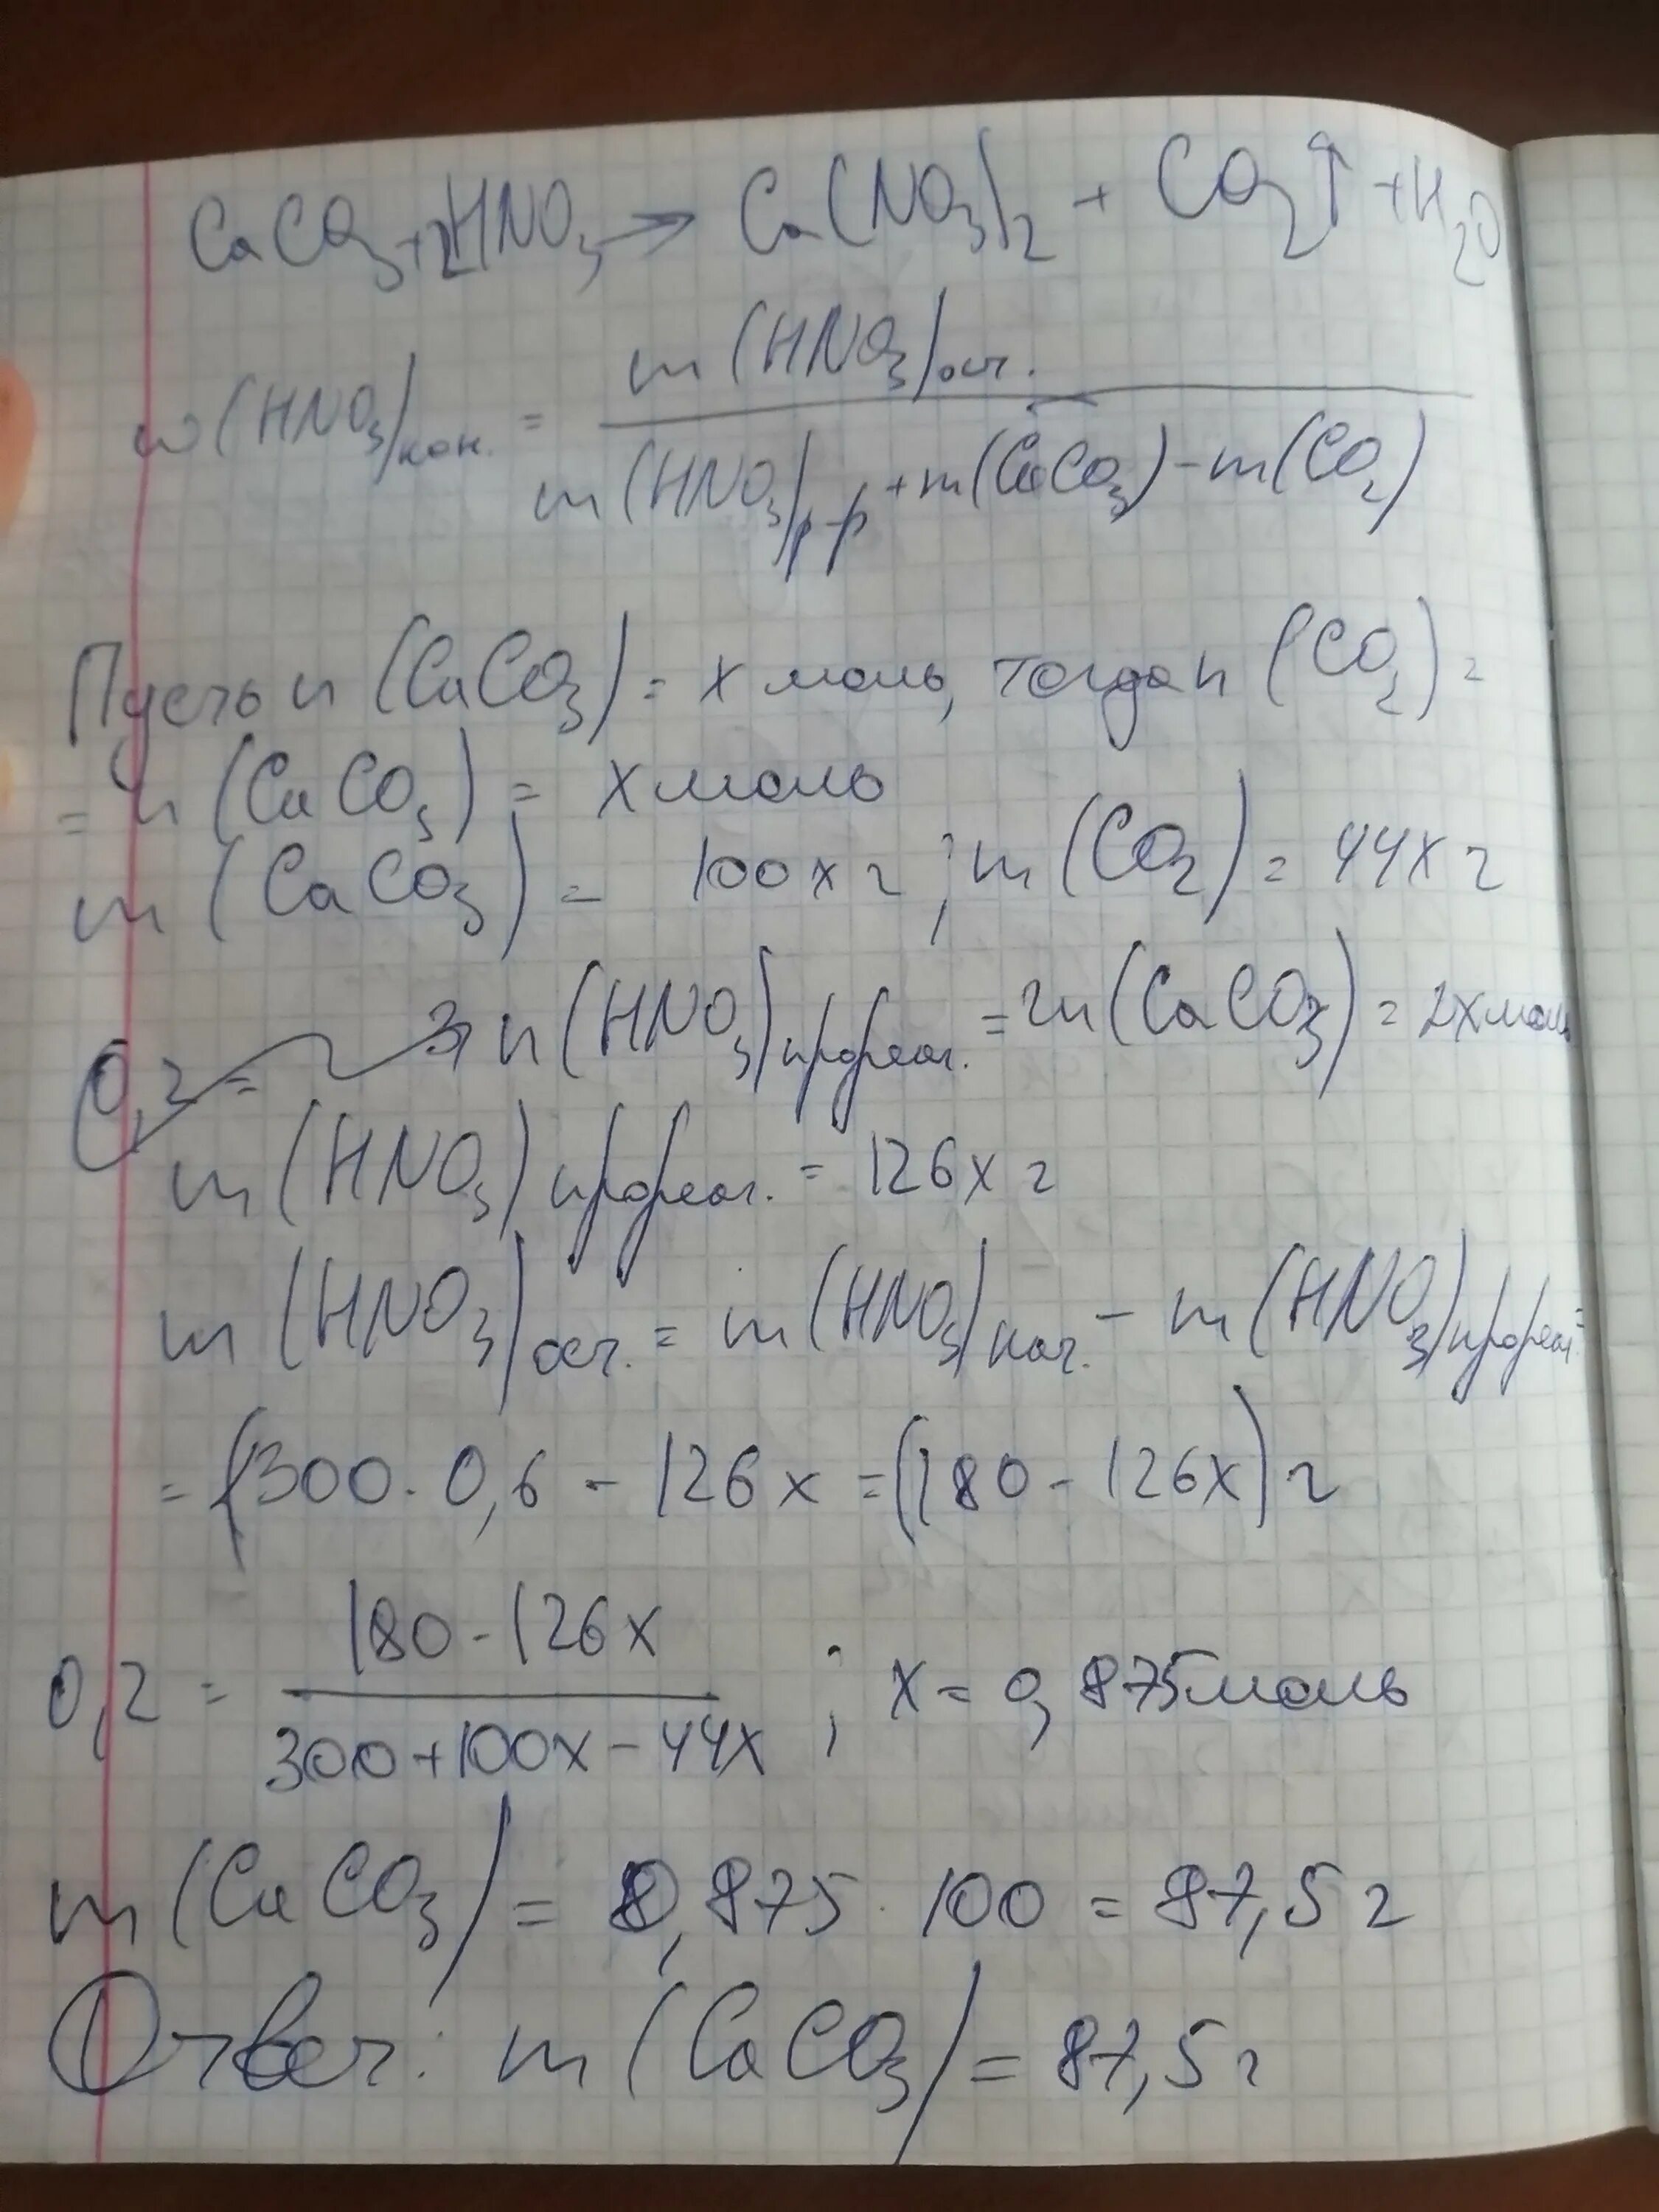 CaCO₃+2HNO₃→ Ca(NO₃)₂ + CO₂↑ +H₂O
w(HNO₃)кон. = m(HNO₃)ост. / m(HNO₃)р-р+m(CaCO₃)-m(CO₂)
Пусть n(CaCO₃)= x моль, тогда n(CO₂)=
= n(CaCO₃) = x моль
m(CaCO₃) = 100x г ; m(CO₂) = 44x г
n(HNO₃)прореаг. = 2n(CaCO₃) = 2x моль
m(HNO₃)прореаг. = 126x г
m(HNO₃)ост. = m(HNO₃)нач. - m(HNO₃)прореаг. =
= (300 · 0,6 - 126x = (180 - 126x) г
0,2 = 180-126x / 300+100x-44x ; x = 0,875моль
m(CaCO₃) = 0,875 · 100 = 87,5 г
Ответ: m(CaCO₃) = 87,5 г